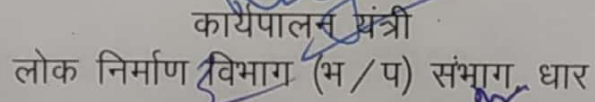 कार्यपालन यंत्री
लोक निर्माण विभाग (भ/प) संभाग, धार